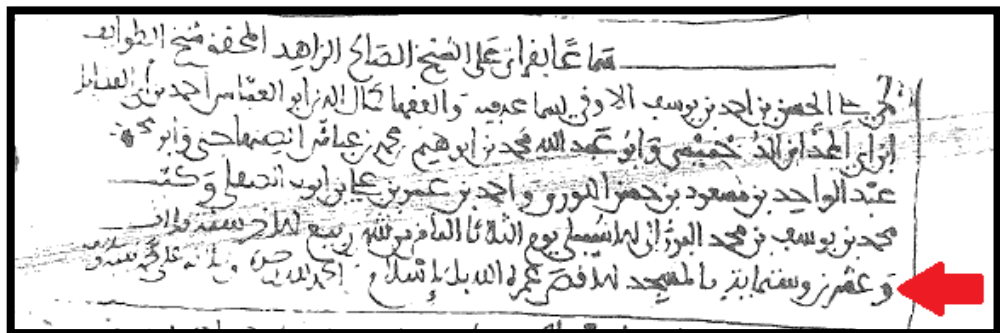 سماعًا بقراءتي على الشيخ الصالح الزاهد المحقق شيخ الطوائف
أبي علي الحسن بن احمد بن يوسف الاوقي بسماعه فيه والفقها كمال الدين ابو العباس احمد بن أبي الفضائل
ابن أبي المجد ابن الدخميسي وأبو عبد الله محمد بن ابرهيم بن محمد بن عياش الصنهاجي وأبو محمد
عبد الواحد بن مسعود بن خضر واحمد بن عمر بن علي بن ايوب الصقلي وكتب
محمد بن يوسف بن محمد البرزالي الاشبيلي يوم الثلاثا الثامن من شهر ربيع الاخر سنة
وعشرين وستمائة بالمسجد الاقصى عمره الله بالإسلام الحمد لله